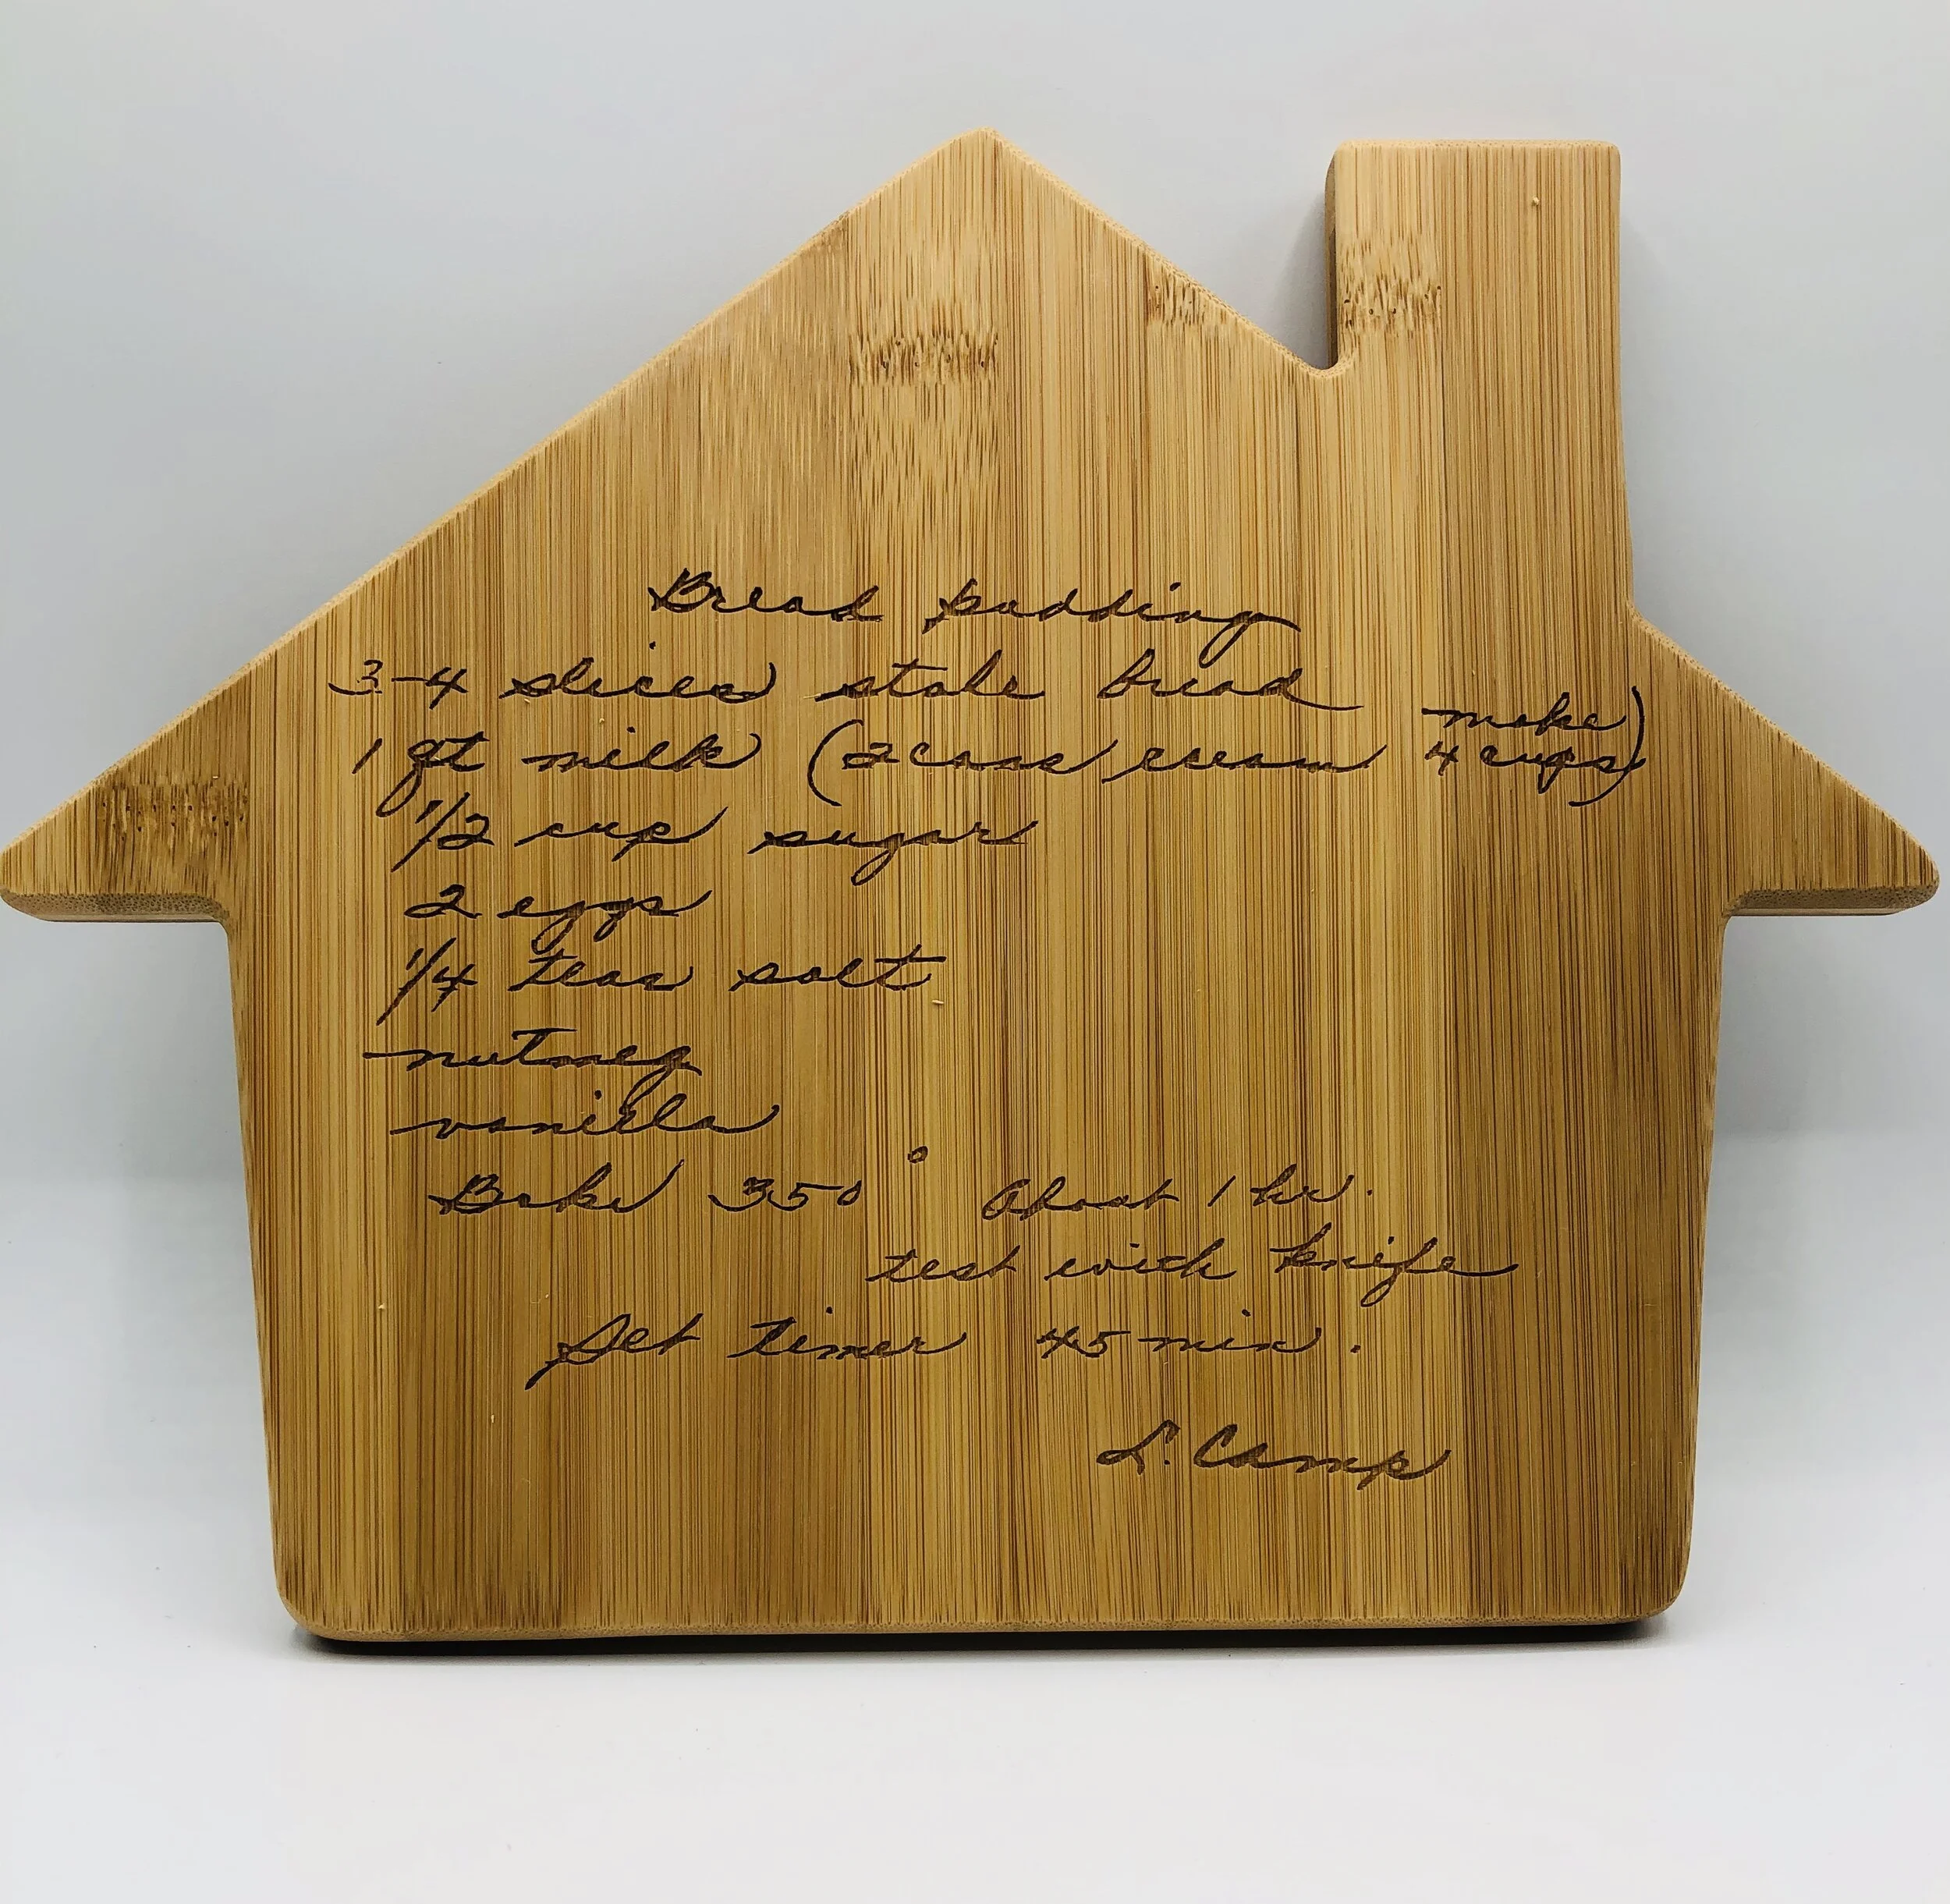 Bread pudding
3-4 slices stale bread
1 qt milk (2 cans cream make 4 cups)
1/2 cup sugar
2 eggs
1/4 teas salt
nutmeg
vanilla
Bake 350° About 1 hr.
test with knife
Set timer 45 min.
L. Camp